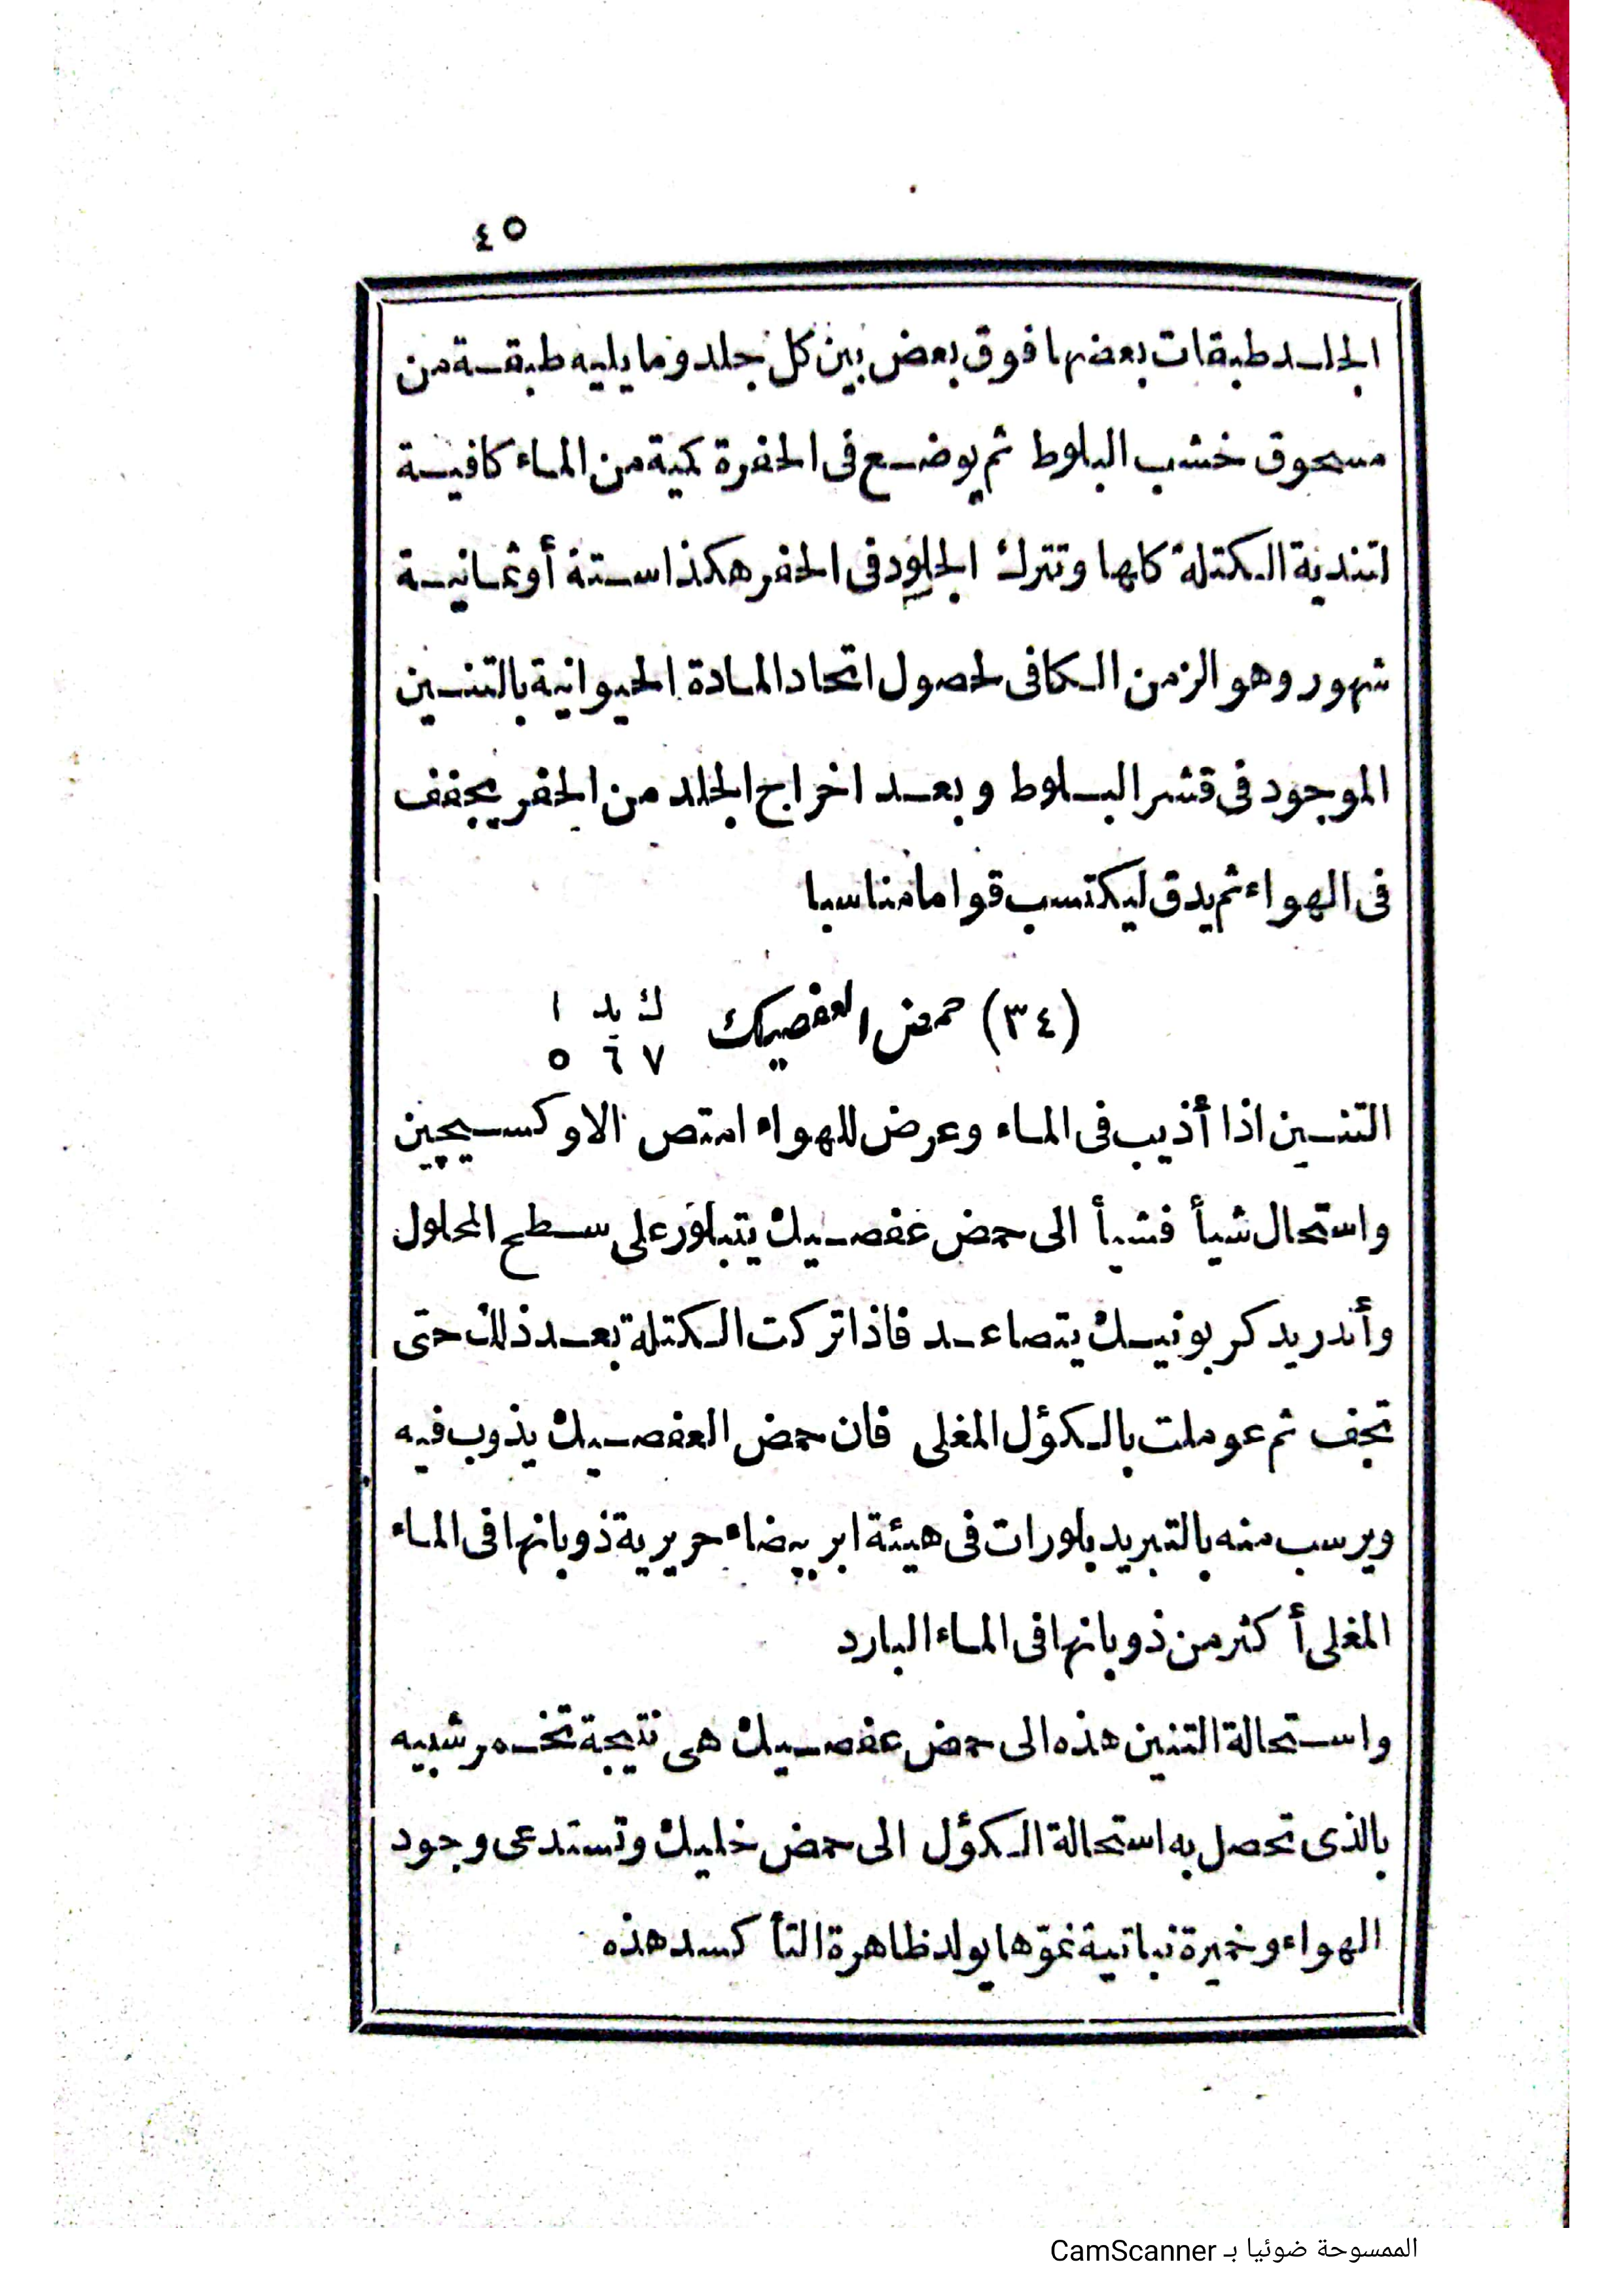 ٤٥
الجلد طبقات بعضها فوق بعض بين كل جلد وما يليه طبقة من
مسحوق خشب البلوط ثم يوضع فى الحفرة كمية من الماء كافية
لتندية الكتلة كلها وتترك الجلود فى الحفر هكذا ستة أو ثمانية
شهور وهو الزمن الكافى لحصول اتحاد المادة الحيوانية بالتنين
الموجود فى قشر البلوط وبعد اخراج الجلد من الحفر يجفف
فى الهواء ثم يدق ليكتسب قواما مناسبا
(٣٤) حمض العفصيك ك٧ يد٦ ا٥
التنين اذا أذيب فى الماء وعرض للهواء امتص الاوكسيجين
واستحال شيأ فشيأ الى حمض عفصيك يتبلور على سطح المحلول
وأندريد كربونيك يتصاعد فاذا تركت الكتلة بعد ذلك حتى
تجف ثم عوملت بالكؤل المغلى فان حمض العفصيك يذوب فيه
ويرسب منه بالتبريد بلورات فى هيئة ابر بيضاء حريرية ذوبانها فى الماء
المغلى أكثر من ذوبانها فى الماء البارد
واستحالة التنين هذه الى حمض عفصيك هى نتيجة تخمر شبيه
بالذى تحصل به استحالة الكؤل الى حمض خليك وتستدعى وجود
الهواء وخميرة نباتية نموّها يولد ظاهرة التأكسد هذه
الممسوحة ضوئيا بـ CamScanner